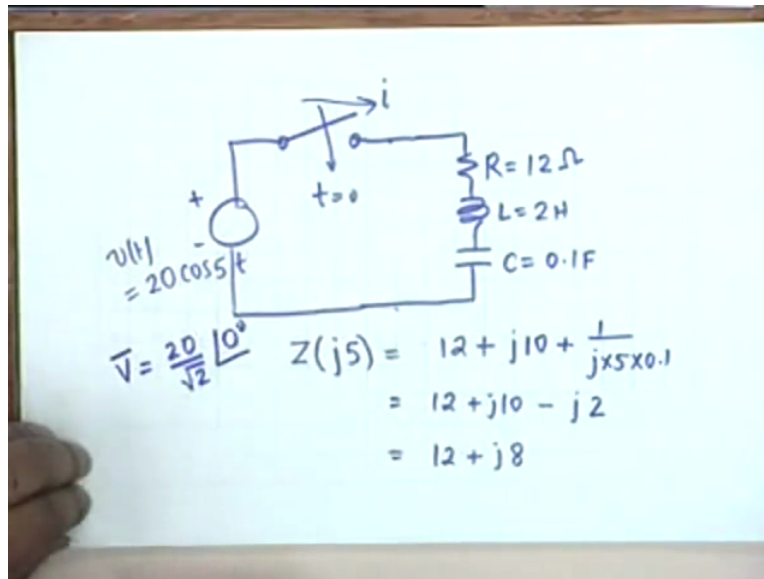 i
t=0
R= 12 Ω
L= 2H
C= 0.1F
+
-
v(t)
= 20 cos5t
V̅ = 20/√2 ∠0° Z(j5) = 12 + j10 + 1/(j×5×0.1)
= 12 + j10 - j2
= 12 + j8